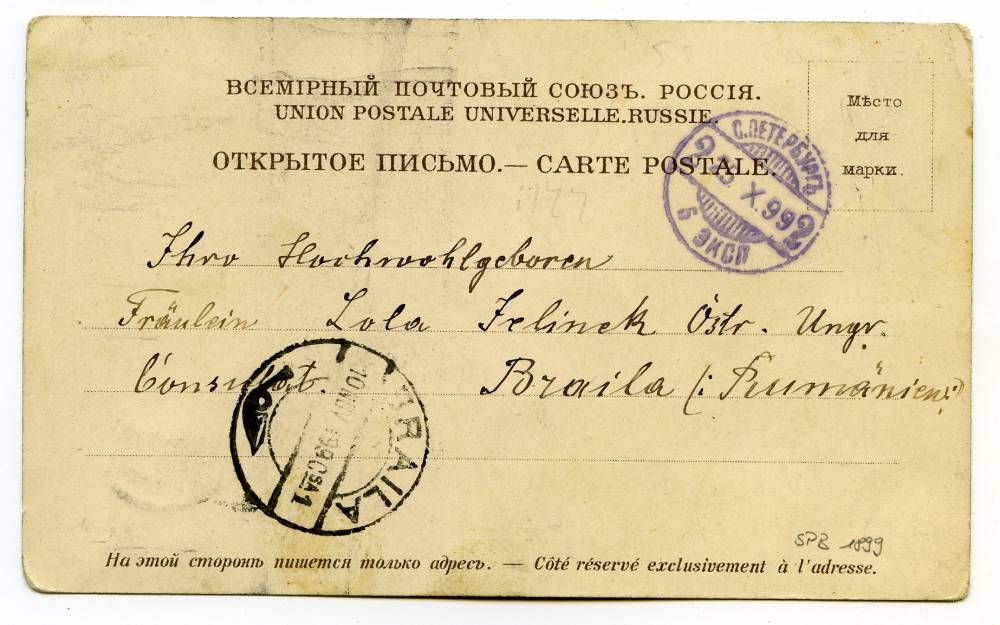 ВСЕМІРНЫЙ ПОЧТОВЫЙ СОЮЗЪ. РОССІЯ.
UNION POSTALE UNIVERSELLE.RUSSIE.
ОТКРЫТОЕ ПИСЬМО.— CARTE POSTALE.
Мѣсто
для
марки.
С.ПЕТЕРБУРГЪ
2 X.99 2
5 ЭКСП
Ihro Hochwohlgeboren
Fräulein Lola Jelinek Östr. Ungr.
Consulat. Braila (: Rumänien:)
BRAILA
10 NOV 99
SPB 1899
На этой сторонѣ пишется только адресъ. — Côté réservé exclusivement à l'adresse.